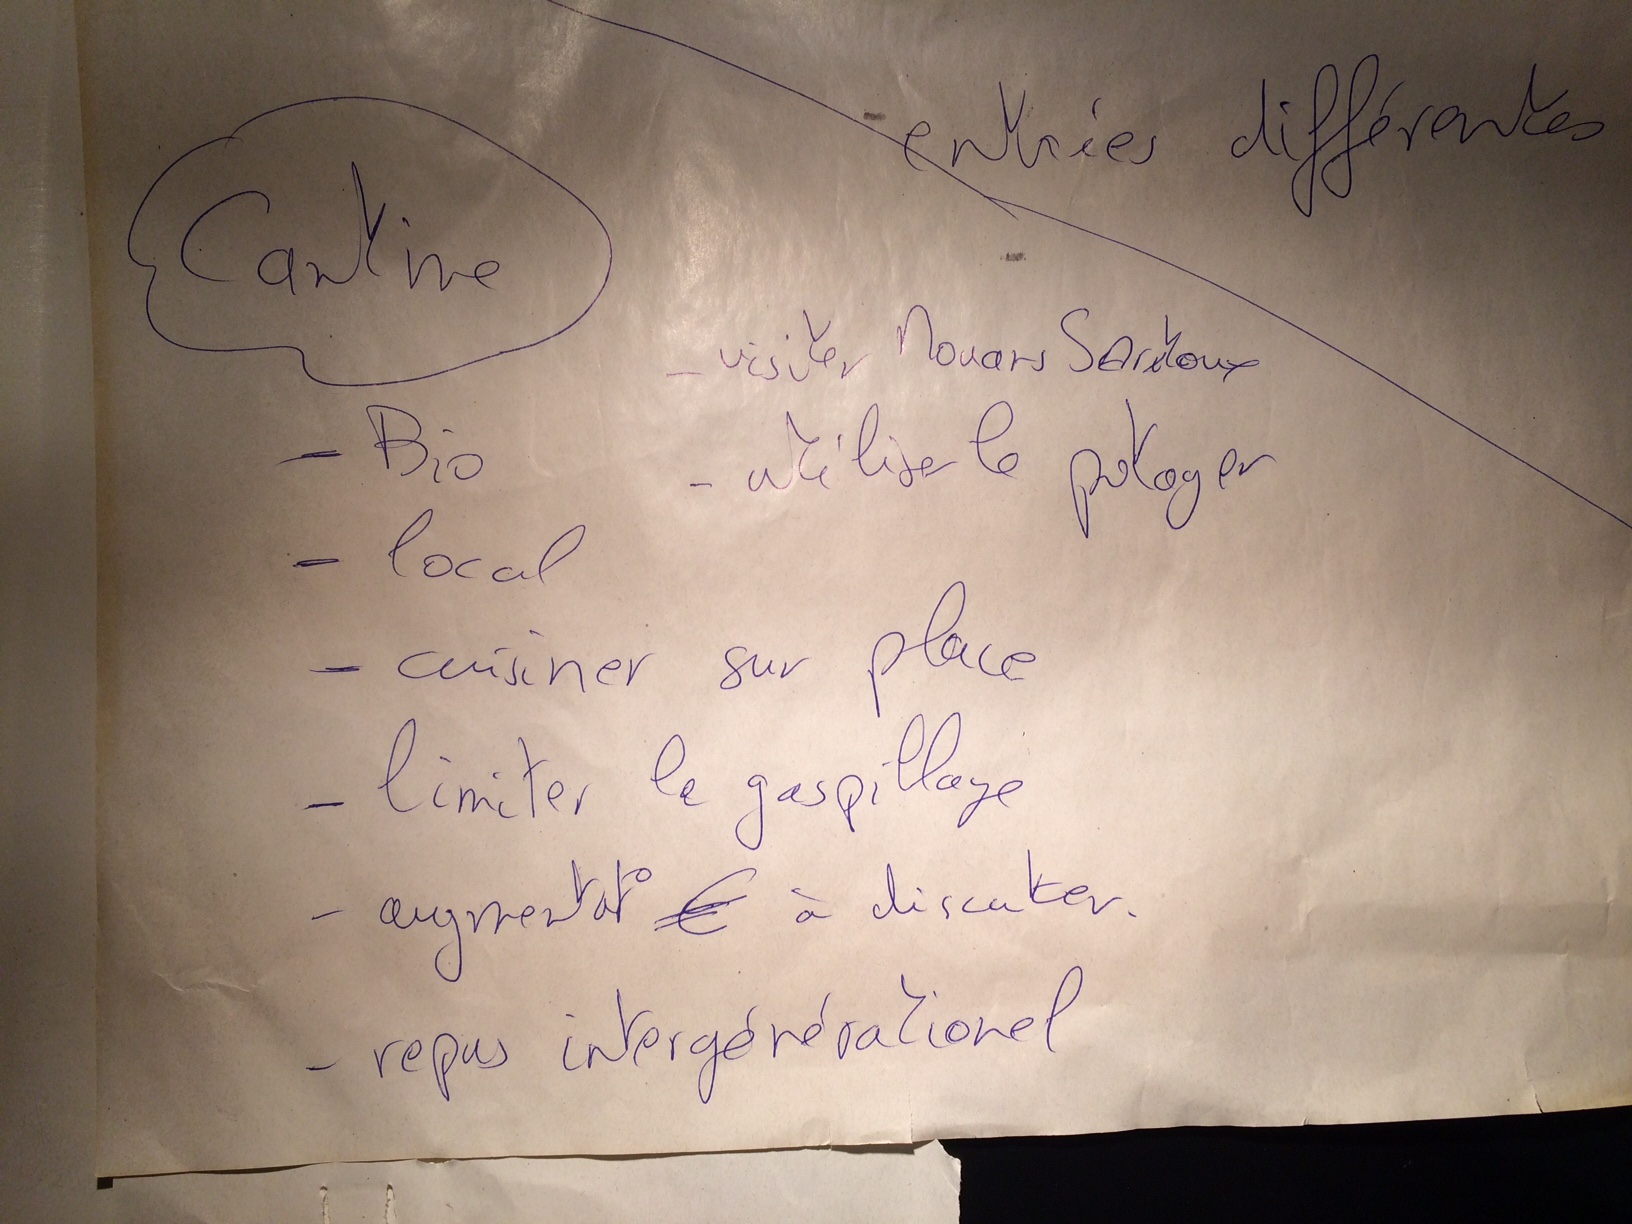 entrées différentes
Cantine
- visiter Mouans Sartoux
- Bio
- utiliser le potager
- local
- cuisiner sur place
- limiter le gaspillage
- augmentat° € à discuter.
- repas intergénérationel